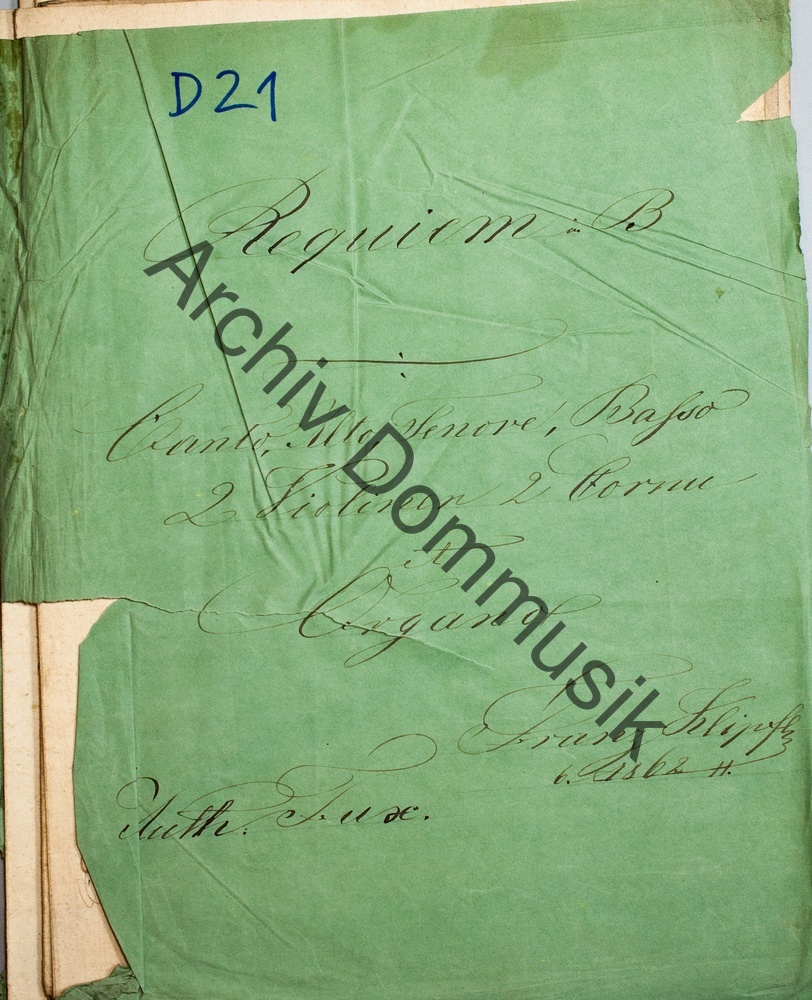 D21
Requiem in B
Canto, Alto, Tenore, Basso
2 Violinen 2 Cornu
Organo
Franz
1862
Auth. Fux.
Archiv Dommusik